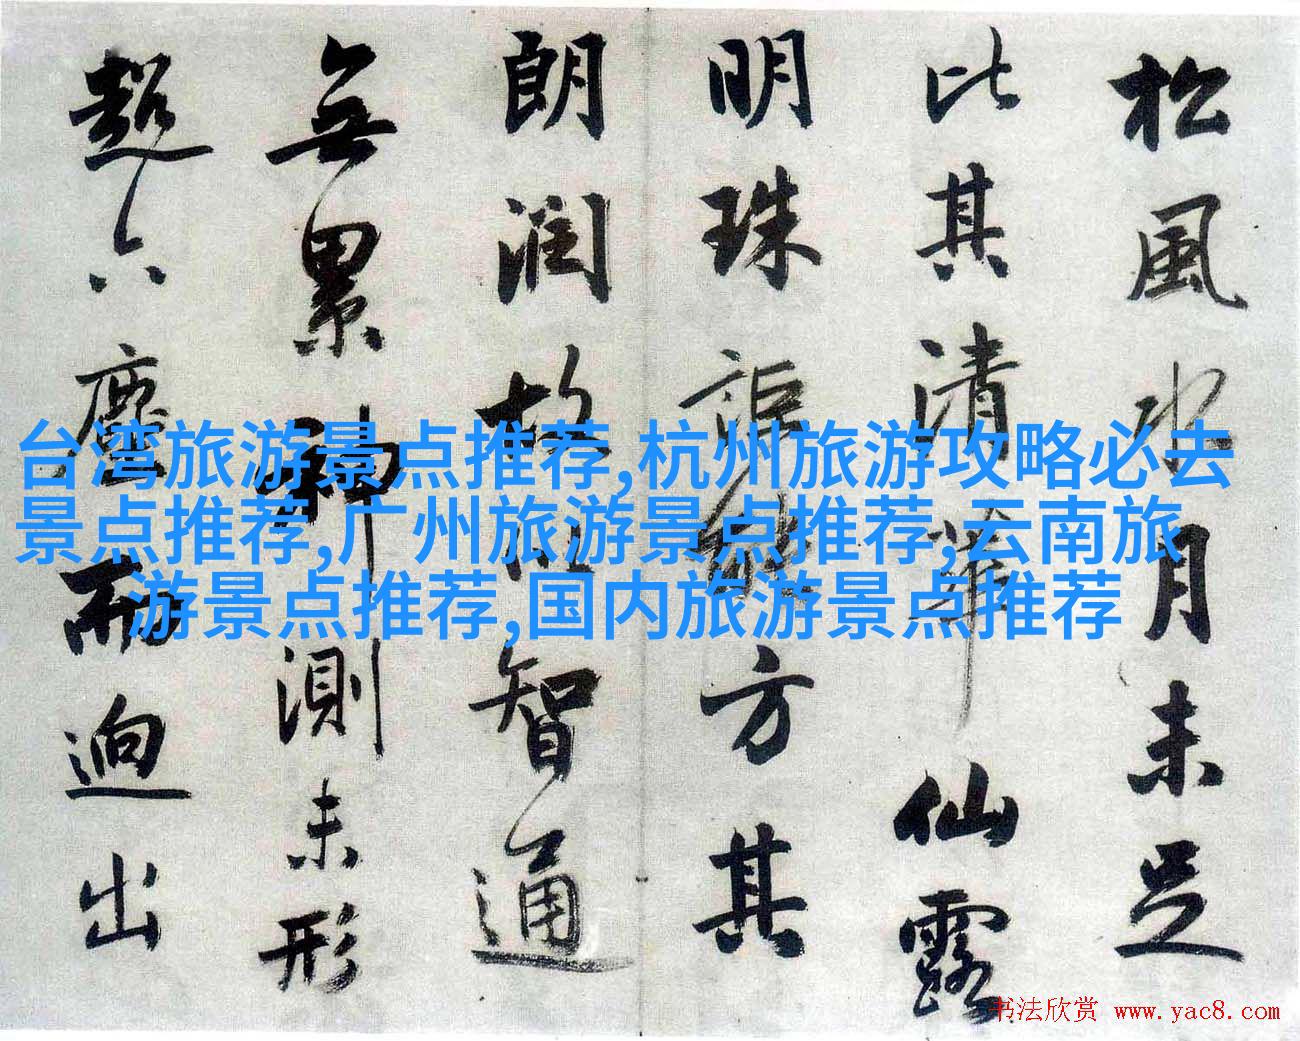 松風水月未足
比其清華仙露
明珠詎能方其
朗潤故以智通
無累神測未形
超六塵而迥出
台湾旅游景点推荐,杭州旅游攻略必去
景点推荐,广州旅游景点推荐,云南旅
游景点推荐,国内旅游景点推荐
书法欣赏 www.yac8.com